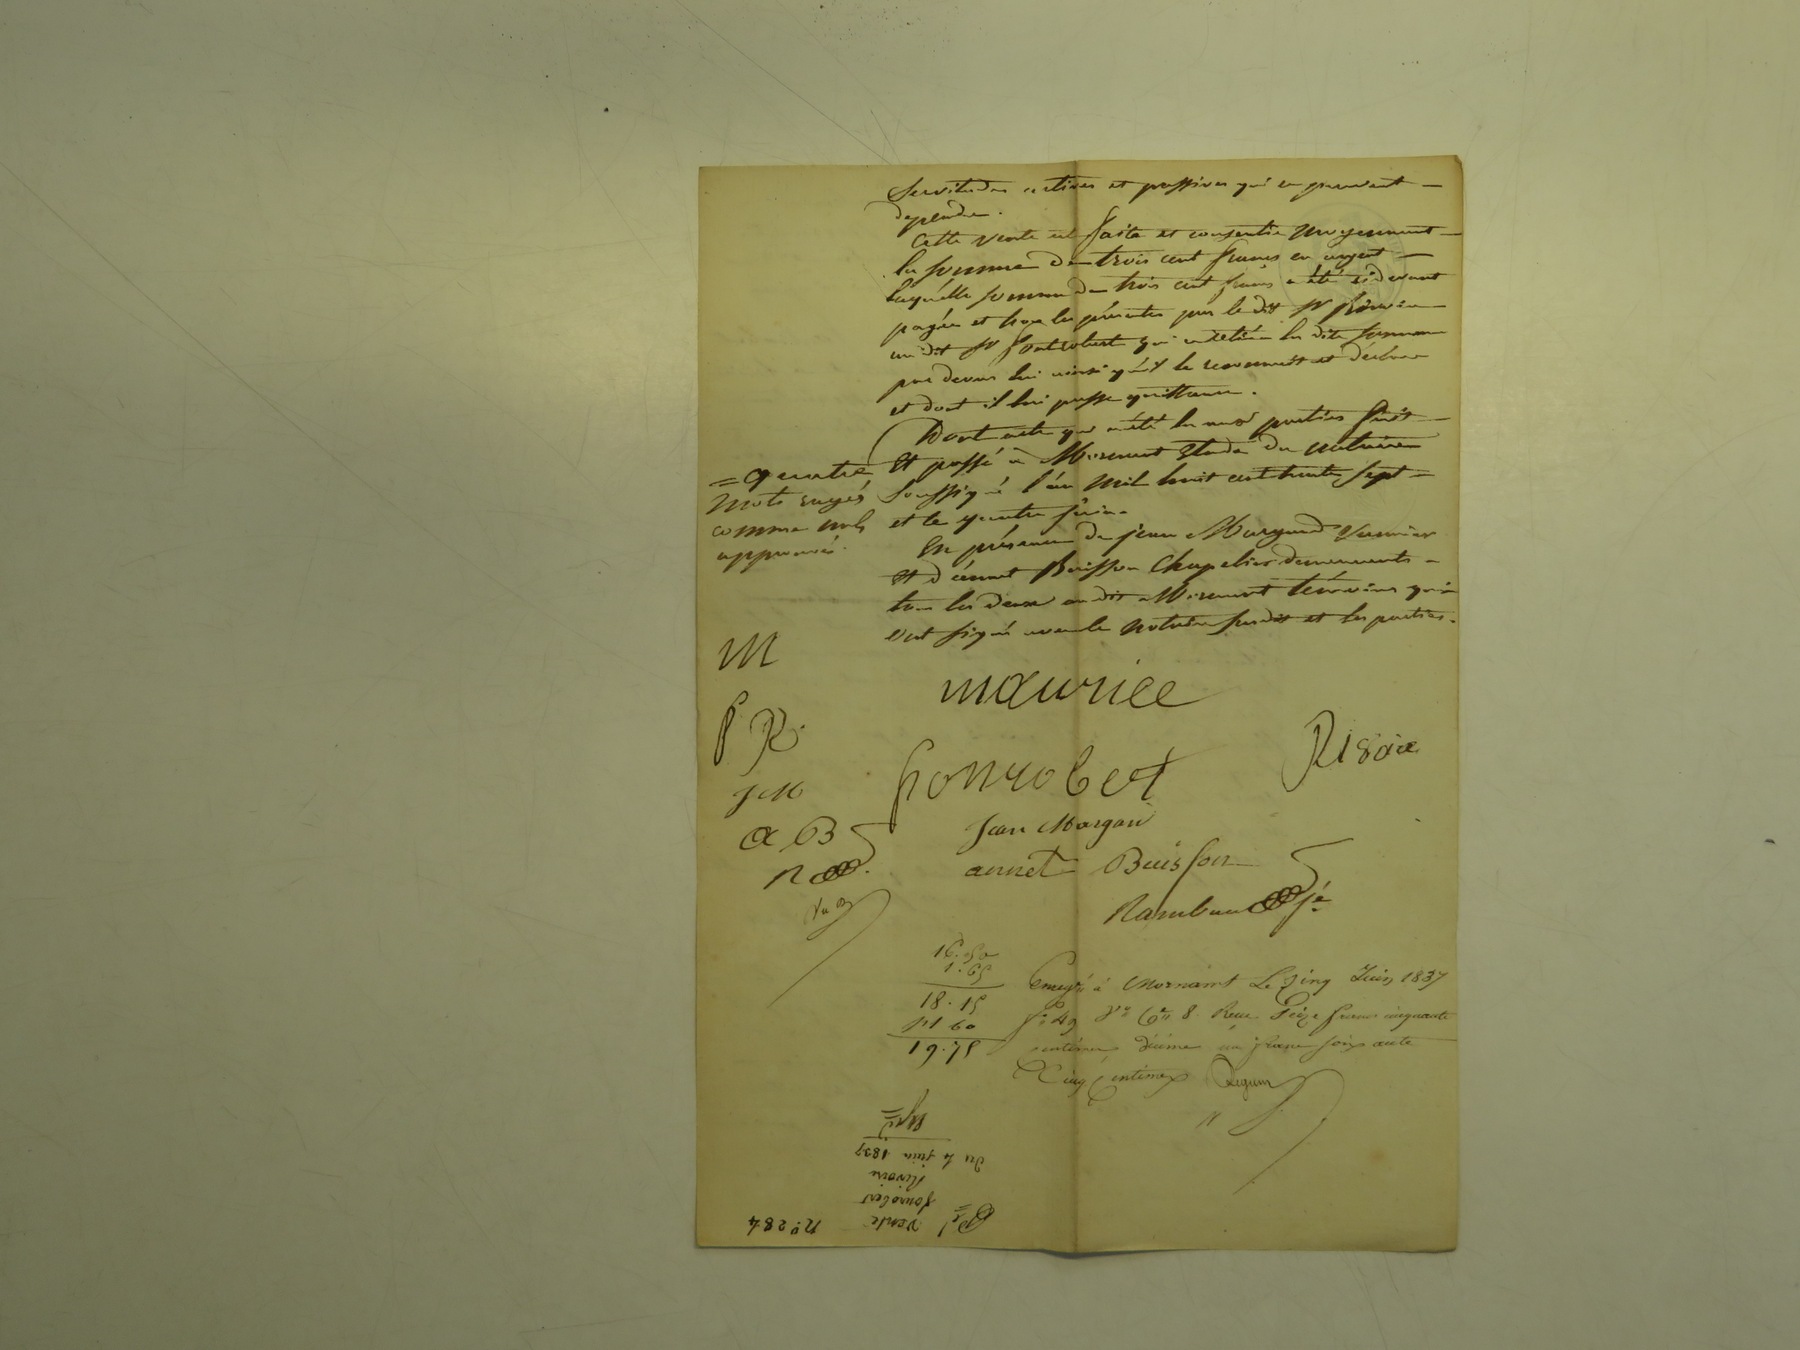 Servitudes actives et passives qui en peuvent
dépendre.
Cette vente est faite et consentie moyennant
la somme de trois cent francs en argent
laquelle somme de trois cent francs a été ci devant
payée et hors les présentes par le dit Sr Rivoire
au dit Sr fontrobert qui a retiré la dite somme
par devers lui ainsi qu'il le reconnait et déclare
et dont il lui passe quittance.
Dont acte qui a été lu aux parties fait
et passé à Mornant Etude du notaire
soussigné l'an mil huit cent trente sept
et le quatre juin.
En présence de jean Margand
et d'annet Buisson Chapelier demeurants
tous les deux au dit Mornant témoins qui
ont signé avec le notaire susdit et les parties.
= quatre
mots rayés
comme nuls
approuvés.
M
f R
J M
a B
R
maurice
fonrobert
Jean Margan
annet Buisson
16.50
1.65
18.15
1 60
19.75
Enreg.ré à Mornant Le cinq Juin 1837
f.o 49 v.o C.e 8. Recu Seize francs cinquante
centimes décime un franc soixante
Cinq Centimes
N.o 284
Vente
fonrobert
Rivoire
du 4 juin 1837
Expé